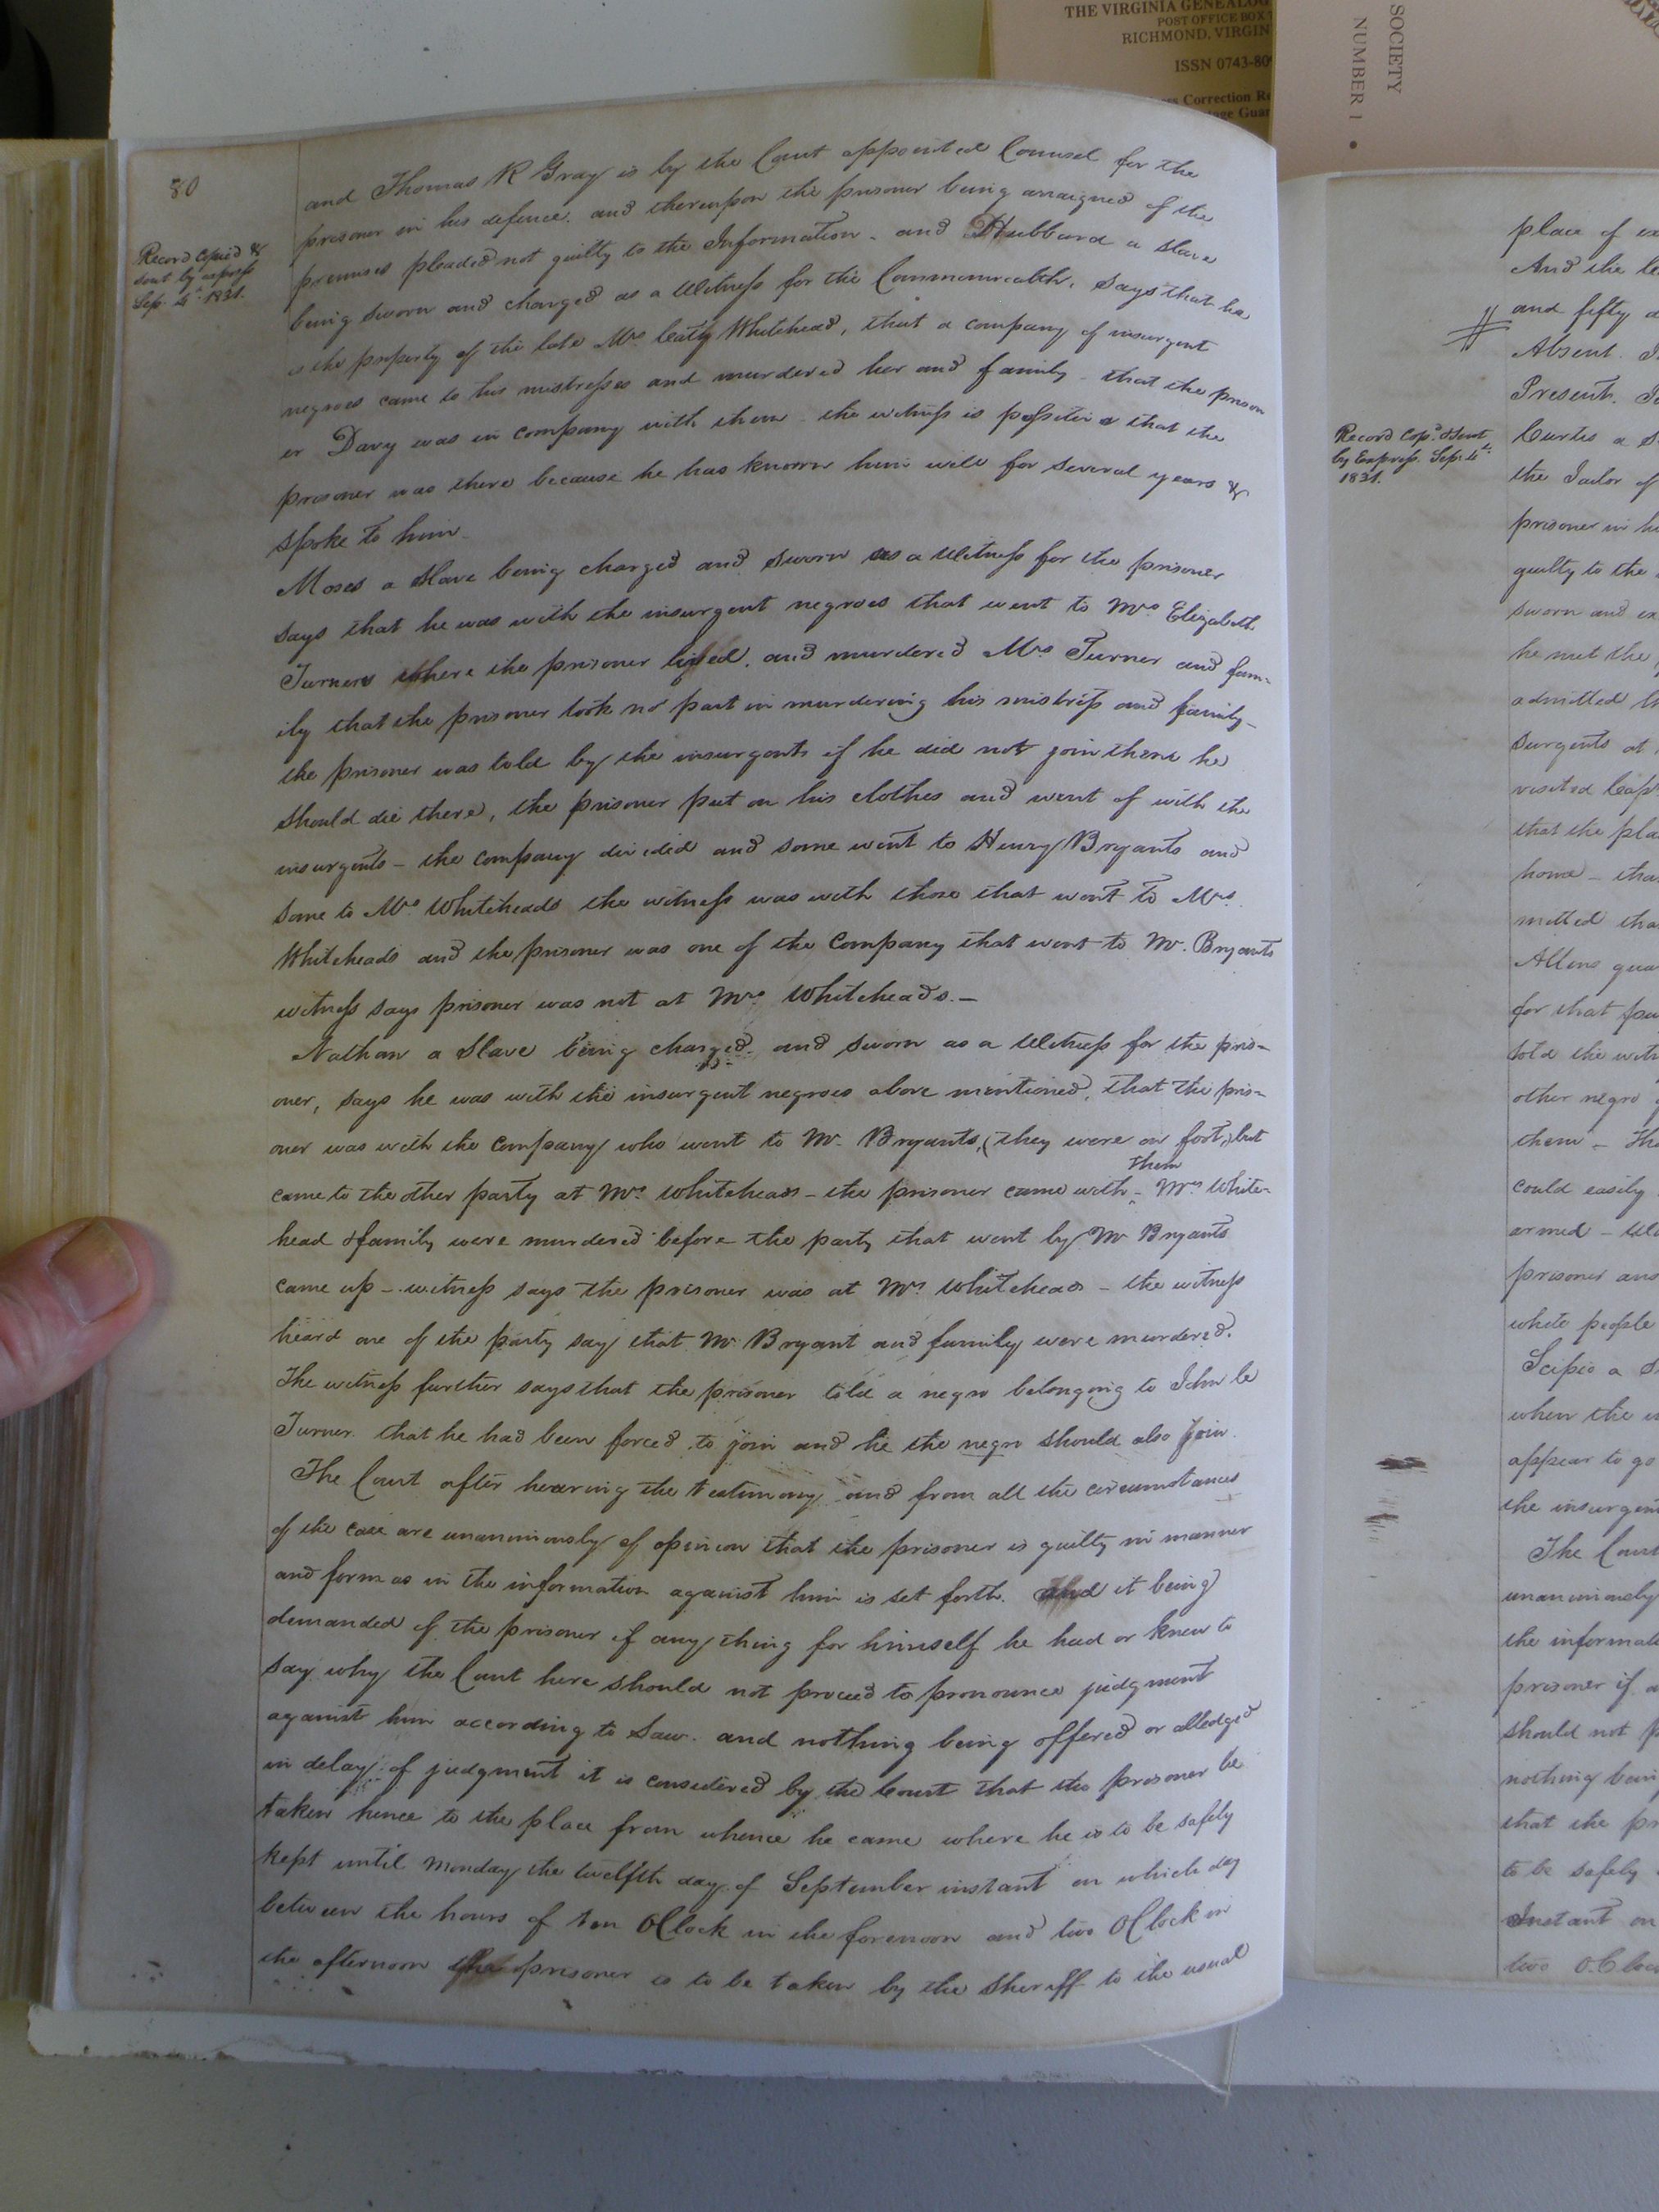 THE VIRGINIA GENEALOG
POST OFFICE BOX
RICHMOND, VIRGIN
ISSN 0743-809
Correction Re
age Guar
SOCIETY
NUMBER 1
80
Record Copied &
sent by express
Sep. 4th 1831.
and Thomas R Gray is by the Court appointed Counsel for the
prisoner in his defence. and thereupon the prisoner being arraigned of the
premises pleaded not guilty to the Information - and Hubbard a slave
being sworn and charged as a Witness for the Commonwealth. Says that he
is the property of the late Mrs Caty Whitehead, that a company of insurgent
negroes came to his mistresses and murdered her and family - that the prison
er Davy was in company with them - the witness is positive that the
prisoner was there because he has known him well for several years &
spoke to him -
Moses a slave being charged and sworn as a Witness for the prisoner
says that he was with the insurgent negroes that went to Mrs Elizabeth
Turners where the prisoner lived. and murdered Mrs Turner and fam-
ily that the prisoner took no part in murdering his mistress and family -
the prisoner was told by the insurgents if he did not join them he
should die there, the prisoner put on his clothes and went of with the
insurgents - the company divided and some went to Henry Bryants and
some to Mrs Whiteheads the witness was with those that went to Mrs.
Whiteheads and the prisoner was one of the company that went to Mr. Bryants
witness says prisoner was not at Mrs Whiteheads. -
Nathan a slave being charged. and sworn as a Witness for the pris-
oner, says he was with the insurgent negroes above mentioned, that the pris-
oner was with the company who went to Mr. Bryants, (they were on foot,) but
came to the other party at Mrs Whiteheads - the prisoner came with them - Mrs White-
head & family were murdered before the party that went by Mr Bryants
came up - witness says the prisoner was at Mrs Whiteheads - the witness
heard one of the party say that Mr. Bryant and family were murdered.
The witness further says that the prisoner told a negro belonging to John C
Turner. that he had been forced to join and he the negro should also join.
The Court after hearing the testimony and from all the circumstances
of the case are unanimously of opinion that the prisoner is guilty in manner
and form as in the information against him is set forth. and it being
demanded of the prisoner if any thing for himself he had or knew to
say why the Court here should not proceed to pronounce judgment
against him according to Law. and nothing being offered or alledged
in delay of judgment it is considered by the Court that the prisoner be
taken hence to the place from whence he came where he is to be safely
kept until Monday the twelfth day of September instant on which day
between the hours of ten OClock in the forenoon and two OClock in
the afternoon the prisoner is to be taken by the Sheriff to the usual
Record Copd. & sent
by Express. Sep. 4th.
1831.
place of ex
And the
and fifty
Absent.
Present.
Curtis a S
the Jailor of
prisoner in hi
guilty to the
sworn and ex
he met the
admitted th
surgents at
visited Cap
that the pla
home - tha
mitted tha
Allens qua
for that pu
told the witn
other negro
them - Th
could easily
armed -
prisoner ans
white people
Scipio a S
when the
appear to go
the insurgen
The Court
unanimously
the informati
prisoner if a
should not p
nothing bein
that the pr
to be safely
Instant on
two O.Cloc